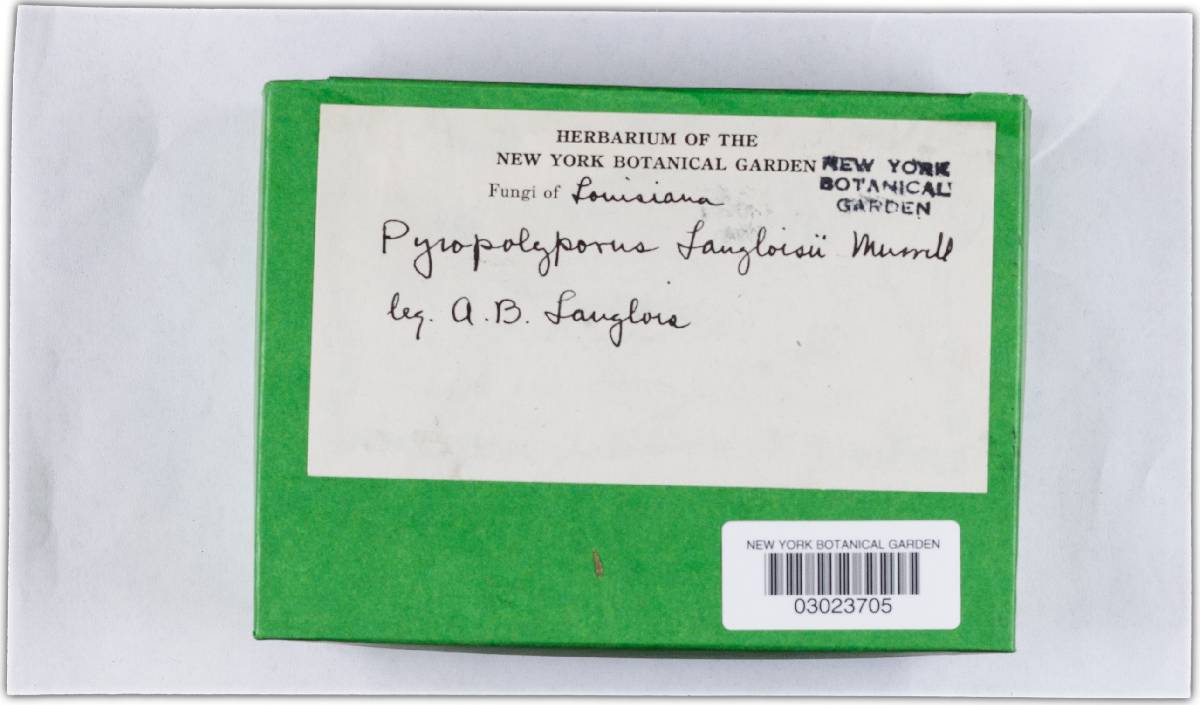 HERBARIUM OF THE
NEW YORK BOTANICAL GARDEN
NEW YORK
BOTANICAL
GARDEN
Fungi of Louisiana
Pyropolyporus Langloisii Murrill
leg. A.B. Langlois
NEW YORK BOTANICAL GARDEN
03023705